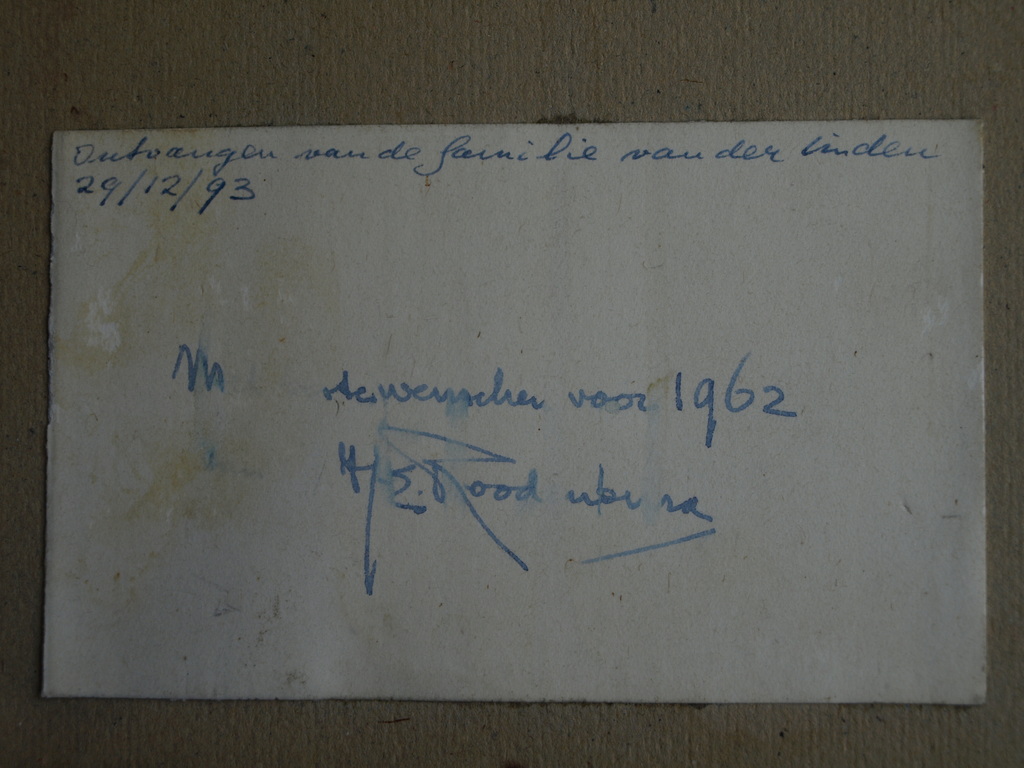 Ontvangen van de familie van der Linden
29/12/93
M wenschen voor 1962
H E Rood